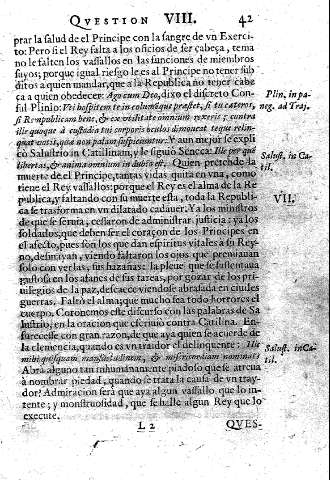 QVESTION VIII. 42
prar la salud de el Principe con la sangre de vn Exerci-
to: Pero si el Rey falta a los oficios de ser cabeça, tema
no le falten los vassallos en las funciones de miembros
suyos; porque igual riesgo le es al Principe no tener sub-
ditos a quien mandar, que a la Republica no tener cabe
ça a quien obedecer. Ago cum Deo, dixo el discreto Con-
sul Plinio.
Plin. in pa-
neg. ad Traj.
si Rempublicam bene, & ex vtilitate omnium rexeris; contra
Y aun mejor se expli
cò Salustrio in Catillinam, y le siguiò Seneca.
libertas, & anima omnium in dubio est. Quien pretende la
Salust. in Ca-
til.
muerte de el Principe, tantas vidas quita en vna, como
tiene el Rey vassallos: porque el Rey es el alma de la Re
publica, y faltando con su muerte esta, toda la Republi
ca se trasforma en vn dilatado cadauer. Ya los ministros
VII.
de que se fiara, cessaron de administrar justicia: ya los
soldados, que deben ser el coraçon de los Principes en
el afecto, pues son los que dan espiritus vitales a su Rey-
no, desmayan, viendo faltaron los ojos que premiauan
solo con verlas, sus hazañas: la plebe que se sustentaua
gustosa en los afanes de sus tareas, por gozar de los pri-
uilegios de la paz, descaece viendose abrasada en ciuiles
guerras. Faltò el alma; que mucho sea todo horrores el
cuerpo. Coronemos este discurso con las palabras de Sa
lustrio, en la oracion que escriuio contra Catilina. En-
furecese con gran razon, de que aya quien se acuerde de
la clemencia, quando es vn traidor el delinquente: Hic
mihi quisquam mansuetudinem, & misericordiam nominat?
Salust. in Ca-
til.
Abrà alguno tan inhumanamente piadoso que se atreua
à nombrar piedad, quando se trata la causa de vn tray-
dor? Admiracion serà que aya algun vassallo que lo in-
tente; y monstruosidad, que se halle algun Rey que lo
execute.
L 2 QVES-